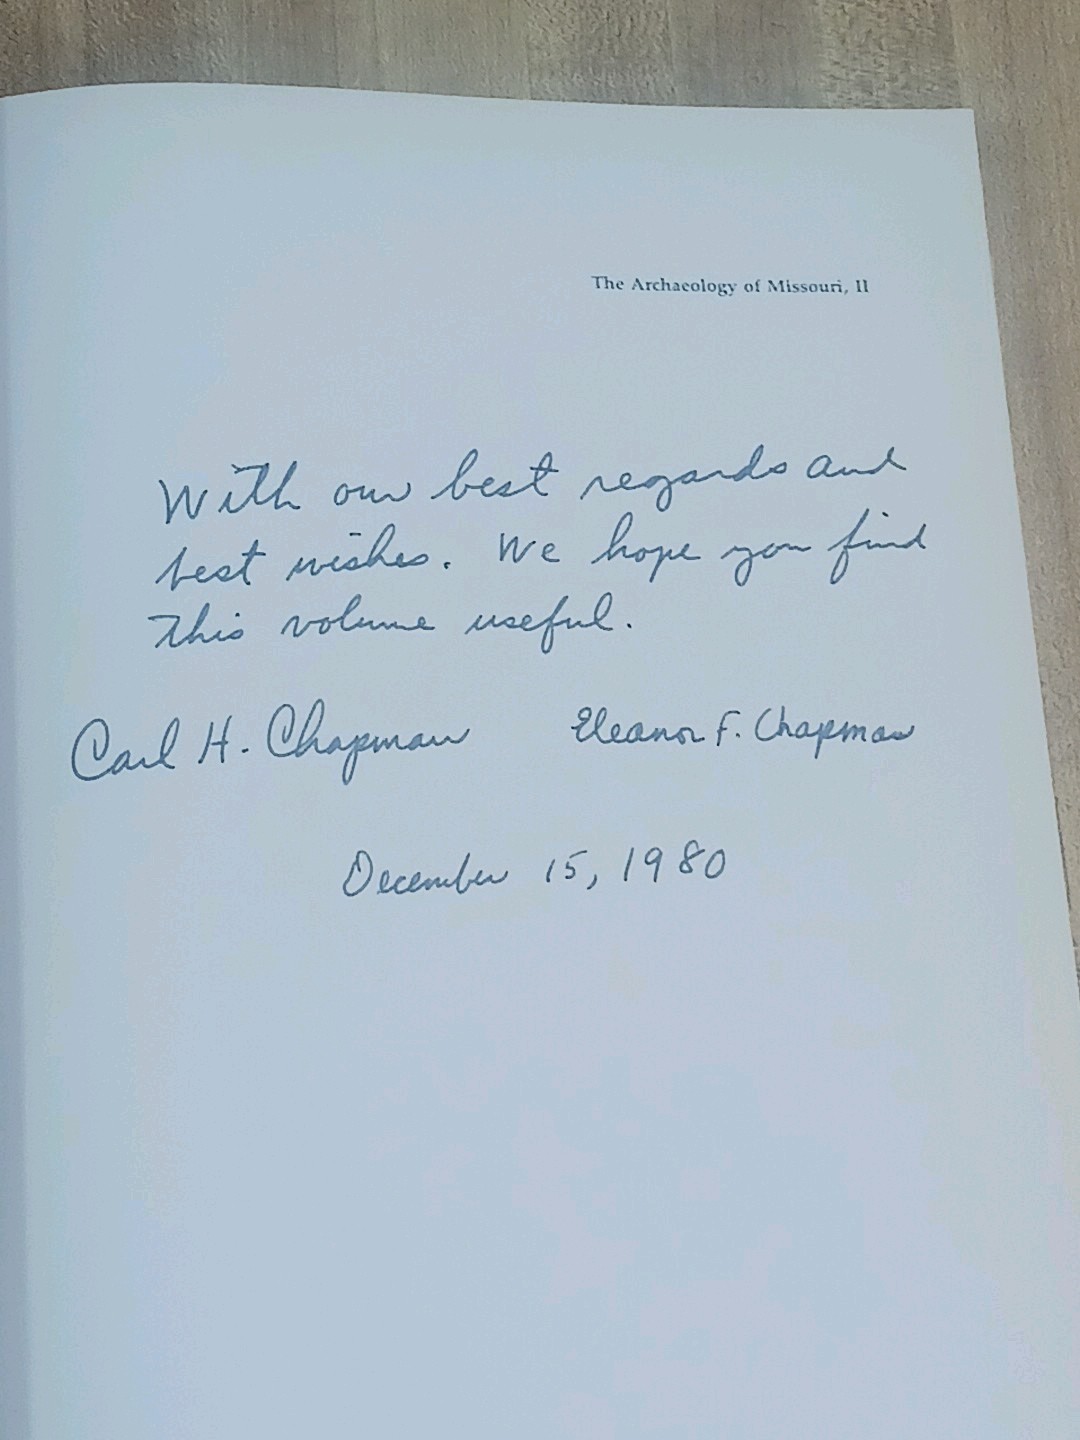 The Archaeology of Missouri, II
With our best regards and
best wishes. We hope you find
this volume useful.
Carl H. Chapman Eleanor F. Chapman
December 15, 1980